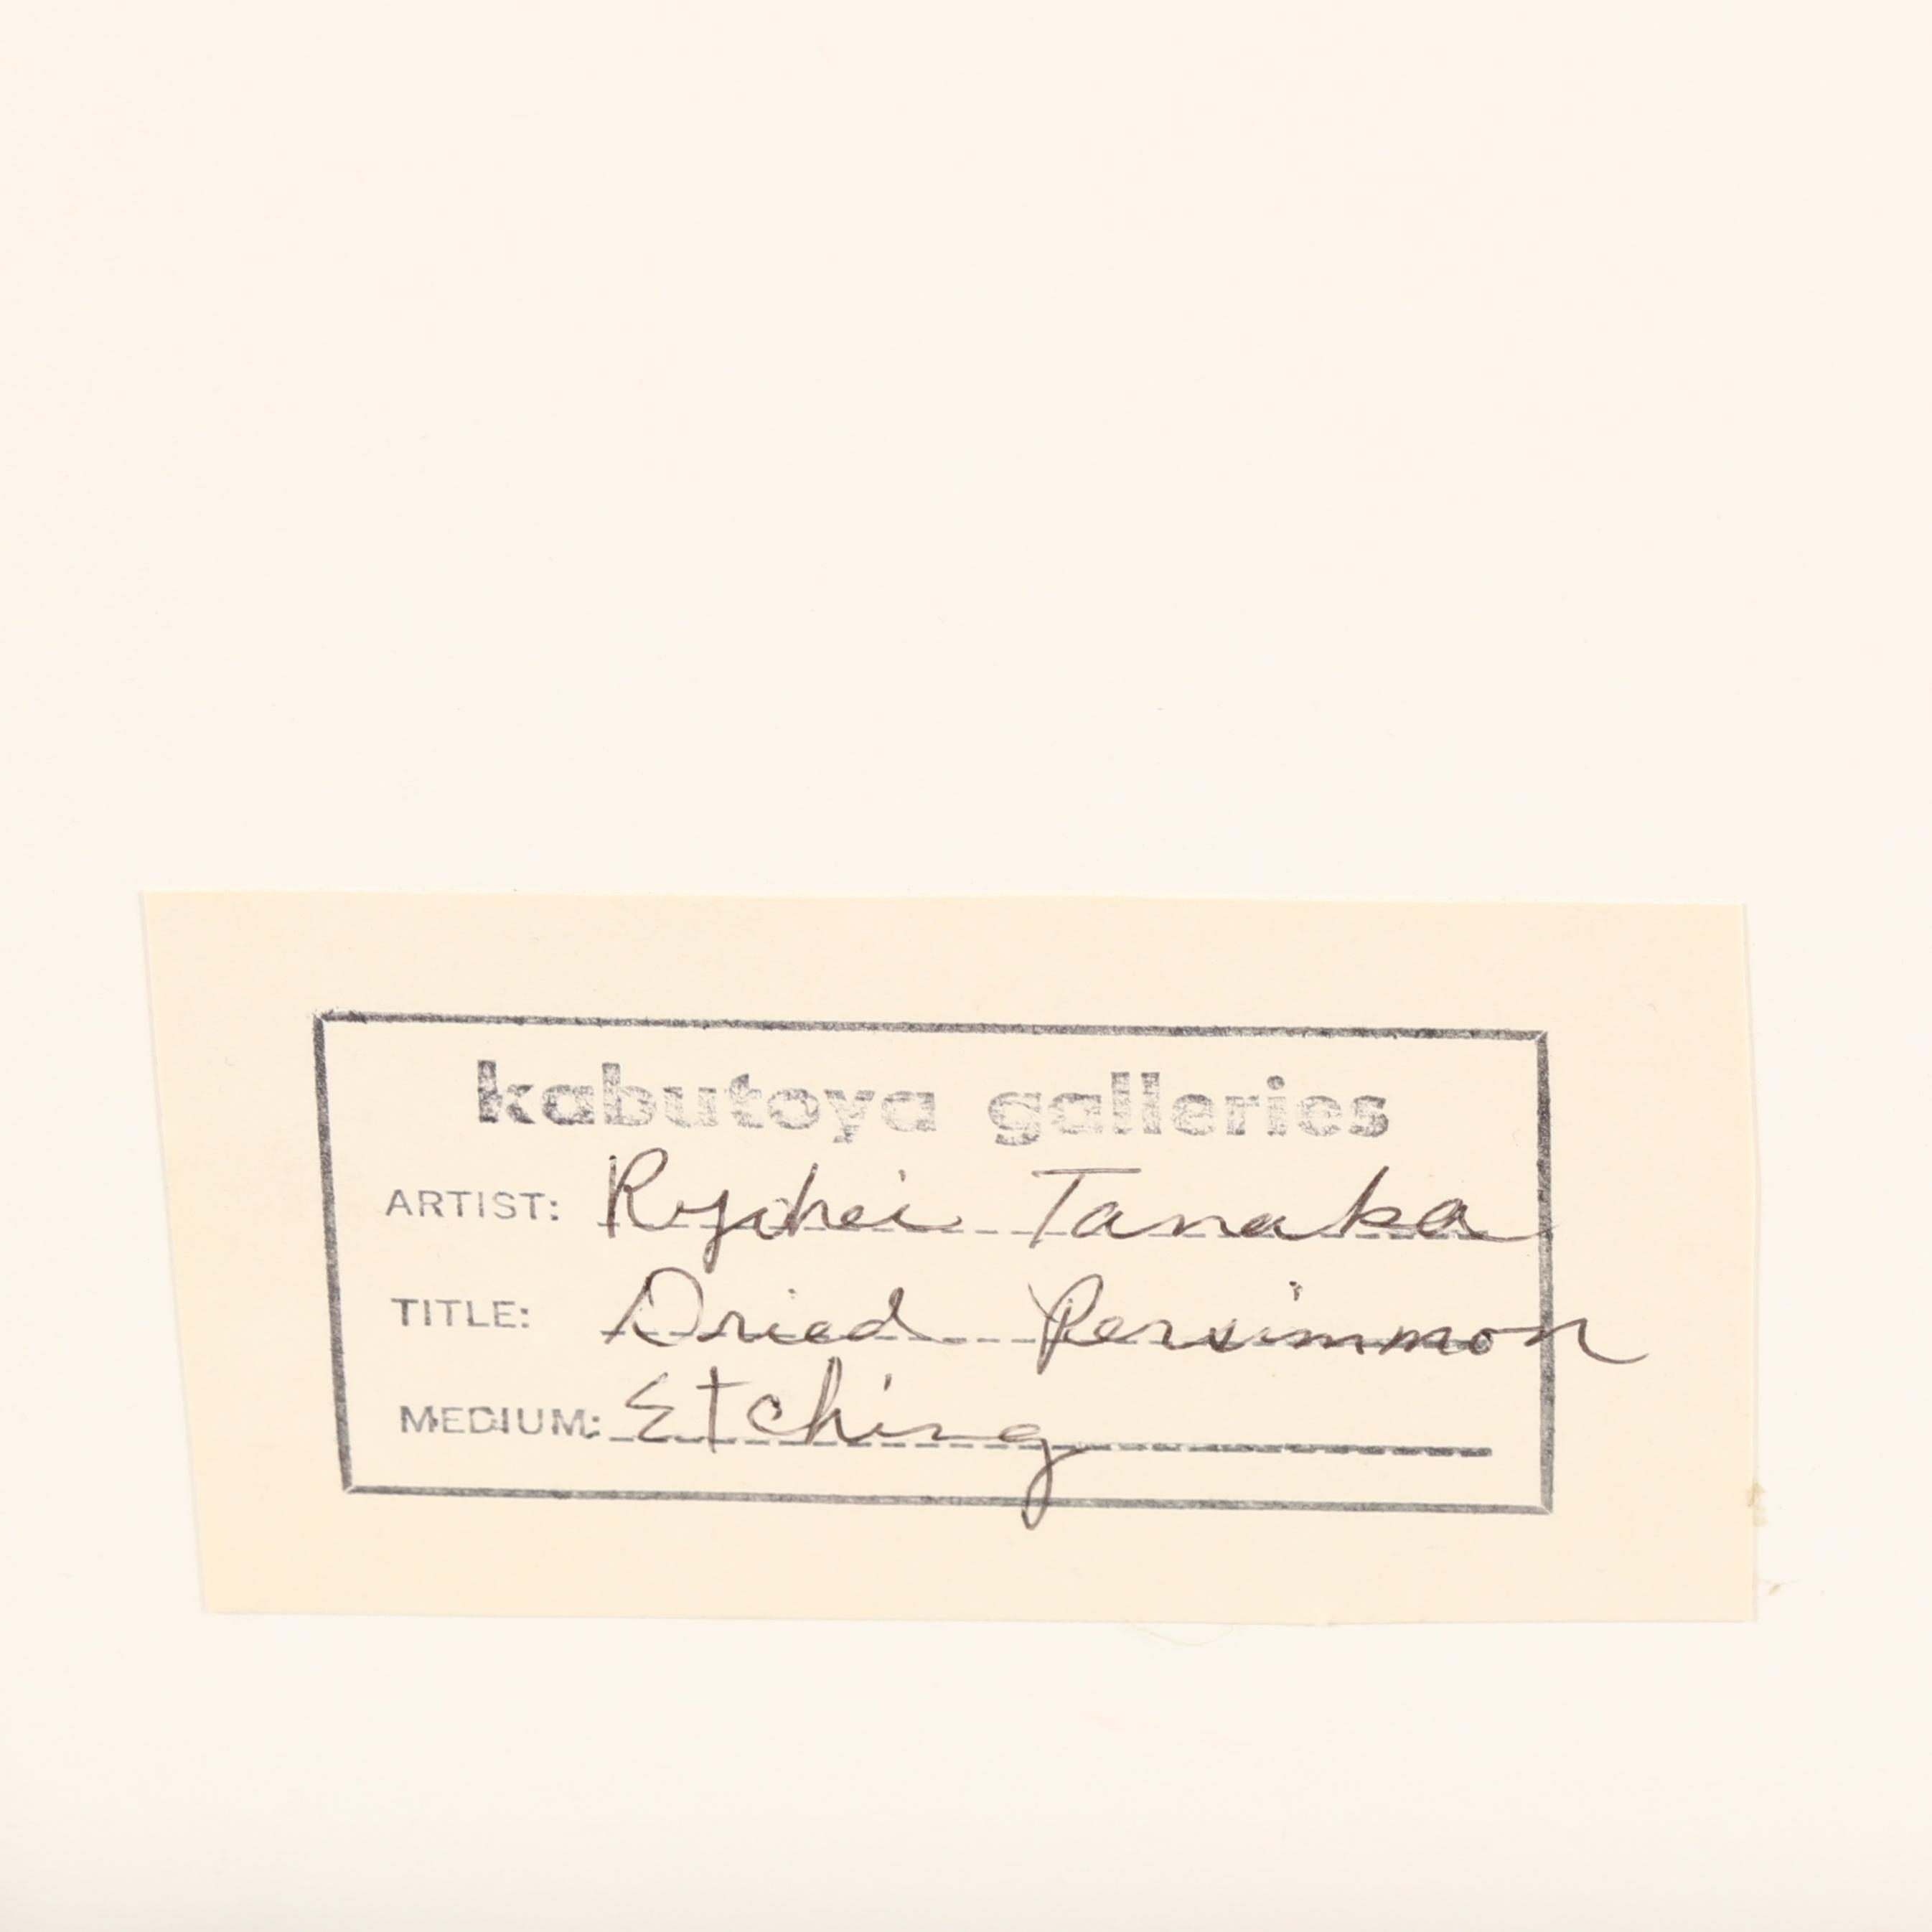 kabutoya galleries
ARTIST: Ryohei Tanaka
TITLE: Dried Persimmon
MEDIUM: Etching